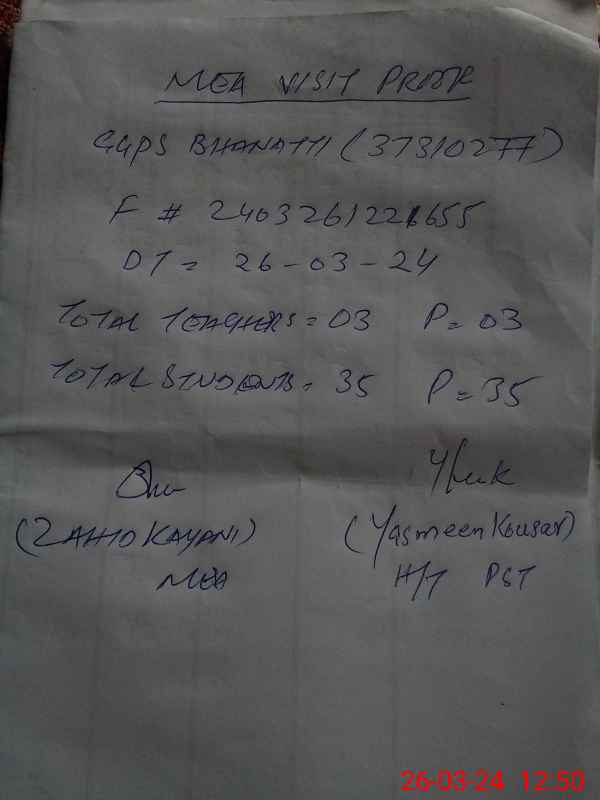 MEA VISIT PROOF
GGPS BHANATTI (37310277)
F # 2403261221655
DT = 26-03-24
TOTAL TEACHERS = 03 P = 03
TOTAL STUDENTS = 35 P = 35
(ZAHID KAYANI) (Yasmeen Kousar)
MEA H/T PST
26-03-24 12:50